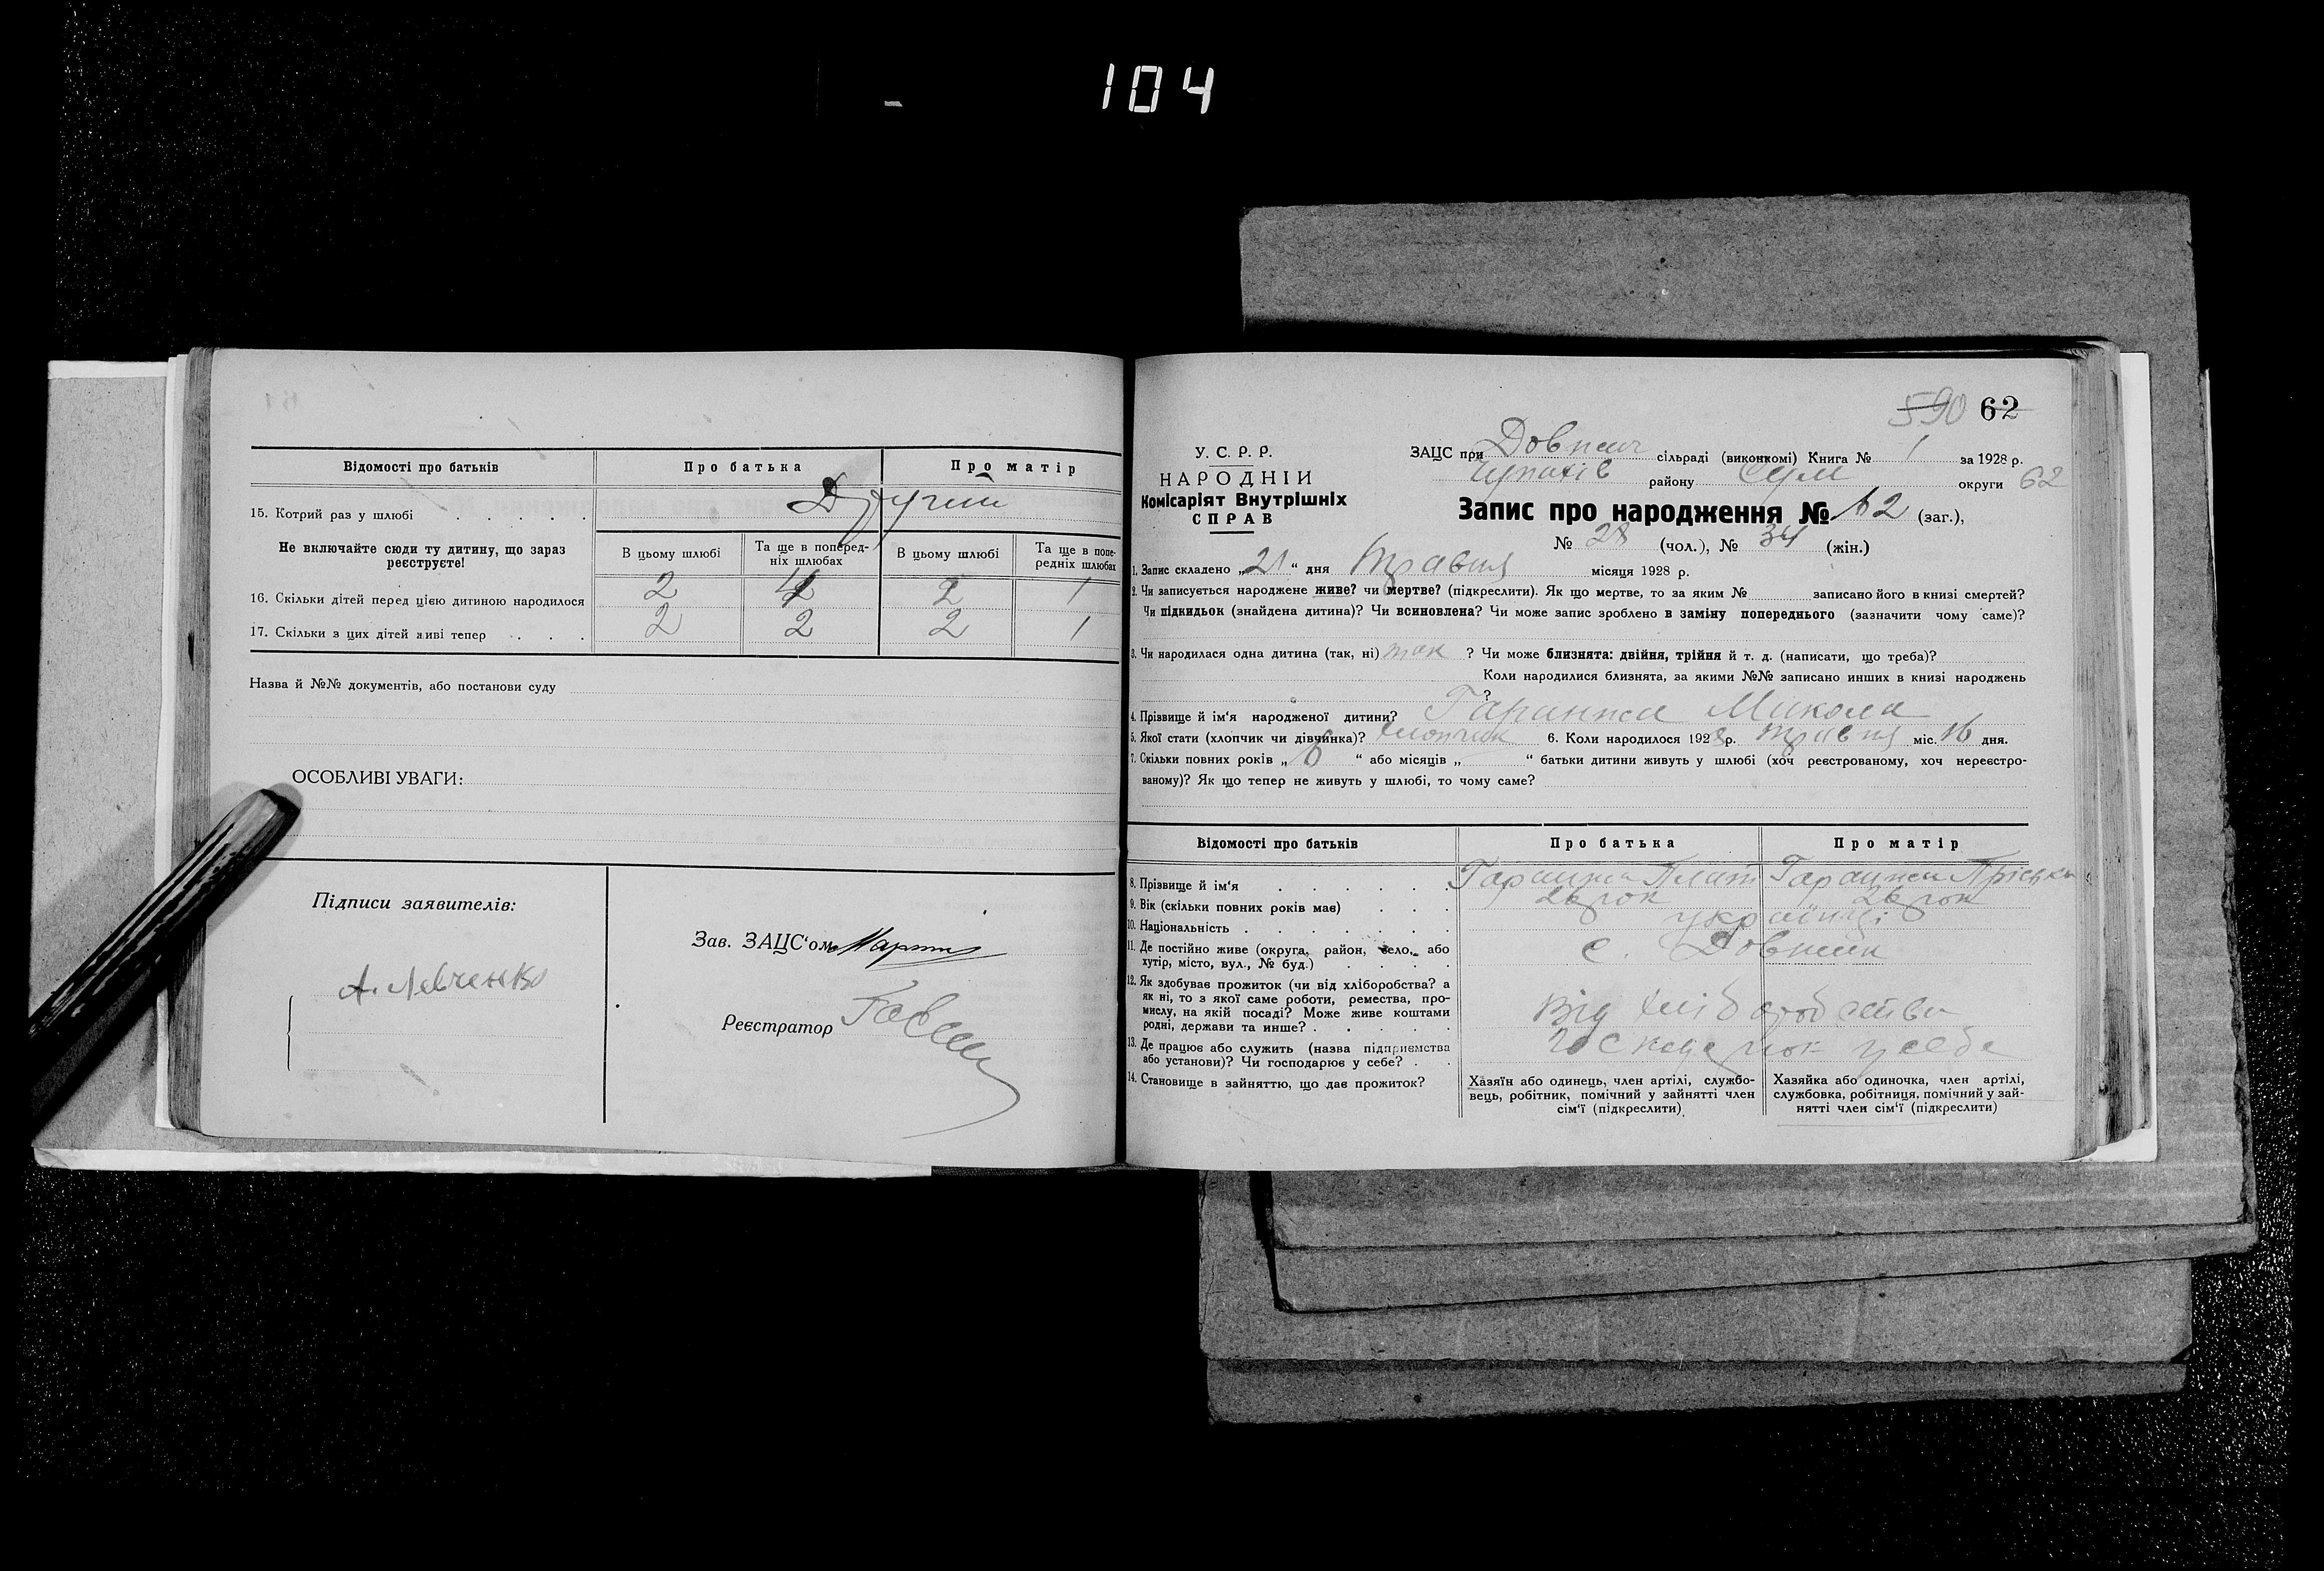 104
Відомості про батьків Про батька Про матір
15. Котрий раз у шлюбі . . . . . Другий
Не включайте сюди ту дитину, що зараз реєструєте!
В цьому шлюбі Та ще в попередніх шлюбах В цьому шлюбі Та ще в попередніх шлюбах
16. Скільки дітей перед цією дитиною народилося 2 2 2 1
17. Скільки з цих дітей живі тепер . . . 2 2 2 1
Назва й №№ документів, або постанови суду
ОСОБЛИВІ УВАГИ:
Підписи заявителів:
А. Левченко
Зав. ЗАЦС'ом
Реєстратор
590 62
У. С. Р. Р.
НАРОДНІЙ
Комісаріят Внутрішніх
СПРАВ
ЗАЦС при Довжич сільраді (виконкомі) Книга № 1 за 1928 р.
Чупахів району Сум округи 62
Запис про народження № 62 (заг.),
№ 28 (чол.), № 34 (жін.)
1. Запис складено „21“ дня травня місяця 1928 р.
2. Чи записується народжене живе? чи мертве? (підкреслити). Як що мертве, то за яким № записано його в книзі смертей?
Чи підкидьок (знайдена дитина)? Чи всиновлена? Чи може запис зроблено в заміну попереднього (зазначити чому саме)?
3. Чи народилася одна дитина (так, ні) так ? Чи може близнята: двійня, трійня й т. д. (написати, що треба)?
Коли народилися близнята, за якими №№ записано инших в книзі народжень
?
4. Прізвище й ім'я народженої дитини? Гаранжа Микола
5. Якої стати (хлопчик чи дівчинка)? хлопчик 6. Коли народилося 1928 р. травня міс. 16 дня.
7. Скільки повних років „ 6 “ або місяців „ “ батьки дитини живуть у шлюбі (хоч реєстрованому, хоч нереєстро-
ваному)? Як що тепер не живуть у шлюбі, то чому саме?
Відомості про батьків Про батька Про матір
8. Прізвище й ім'я . . . . . . Гаранжа Плат Гаранжа Пріська
9. Вік (скільки повних років має) . . . 26 рок 26 рок
10. Національність . . . . . . . українці
11. Де постійно живе (округа, район, село, або
хутір, місто, вул., № буд.) . . . . с. Довжик
12. Як здобуває прожиток (чи від хліборобства? а
як ні, то з якої саме роботи, ремества, про-
мислу, на якій посаді? Може живе коштами
родні, держави та инше? . . . . . Від хліборобства
13. Де працює або служить (назва підприємства
або установи)? Чи господарює у себе? . . у себе
14. Становище в зайняттю, що дає прожиток?
Хазяїн або одинець, член артілі, службо-
вець, робітник, помічний у зайнятті член
сім'ї (підкреслити)
Хазяйка або одиночка, член артілі,
службовка, робітниця, помічний у зай-
нятті член сім'ї (підкреслити)